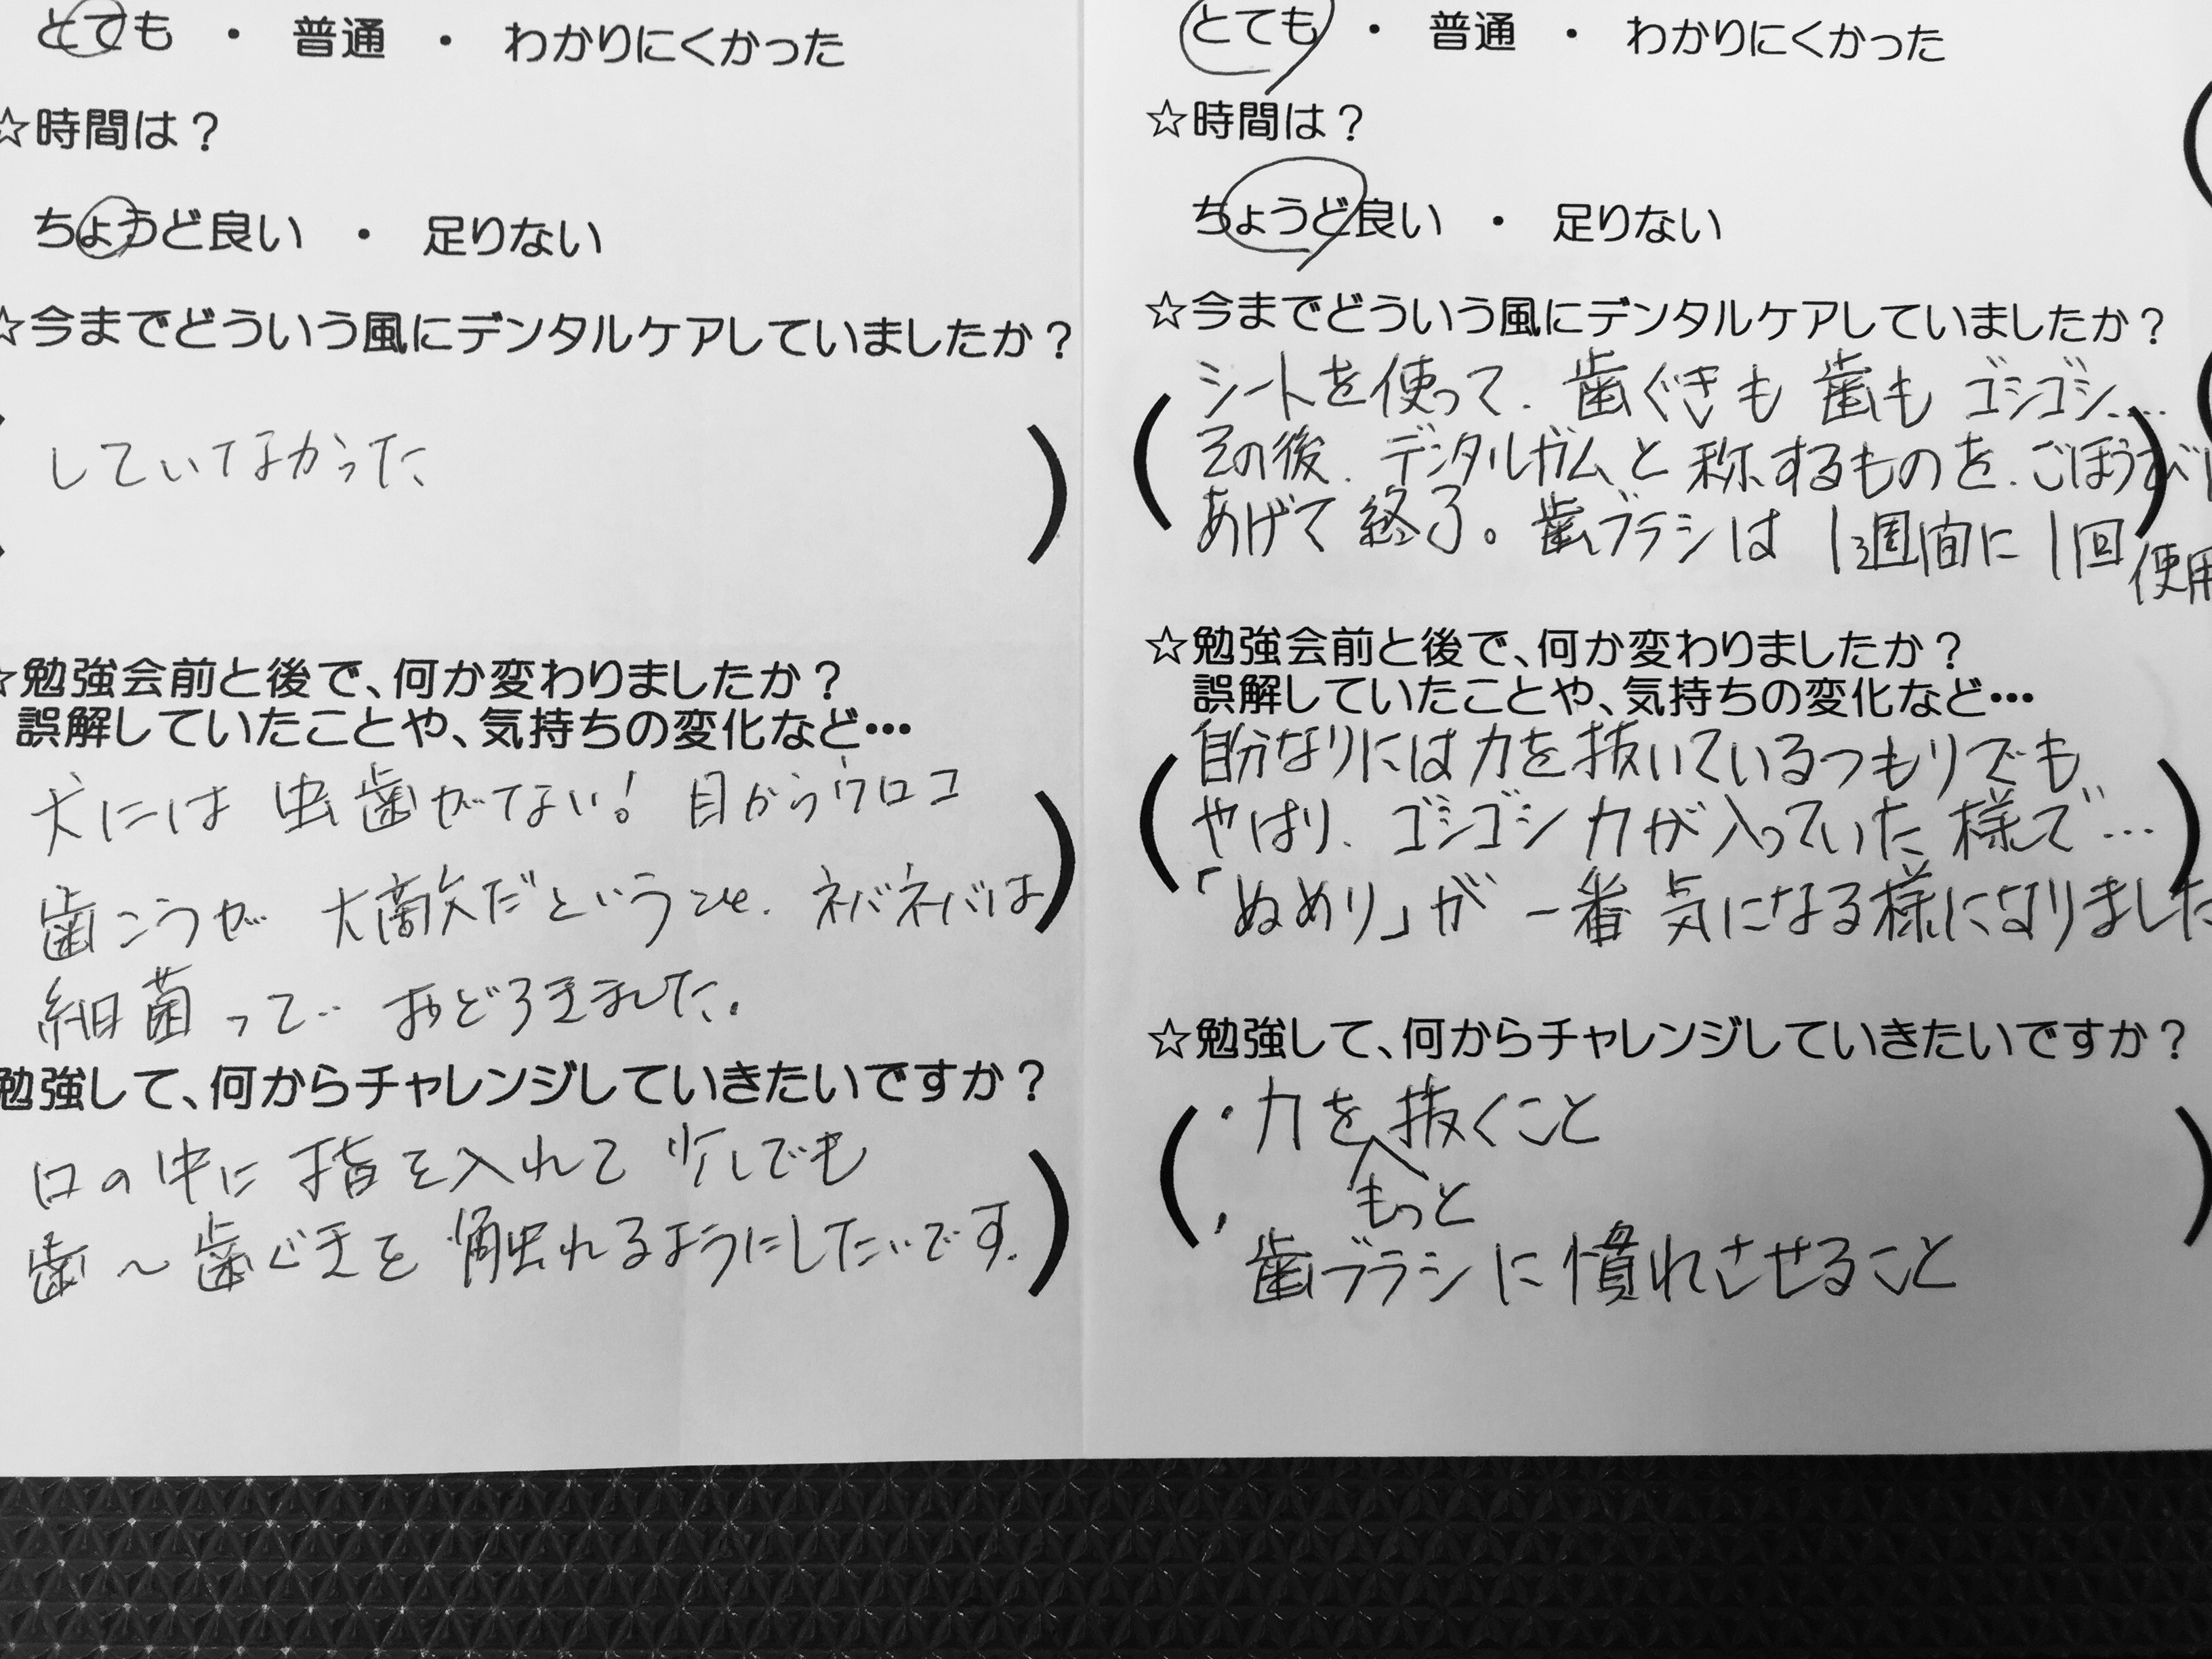 とても ・ 普通 ・ わかりにくかった
☆時間は？
ちょうど良い ・ 足りない
☆今までどういう風にデンタルケアしていましたか？
していなかった
☆勉強会前と後で、何か変わりましたか？
誤解していたことや、気持ちの変化など…
犬には 虫歯がでない! 目からウロコ
歯こうが 大敵だということ. ネバネバは
細菌って… おどろきました.
勉強して、何からチャレンジしていきたいですか？
口の中に 指を入れて 少しでも
歯〜歯ぐきを 触れるようにしたいです.
とても ・ 普通 ・ わかりにくかった
☆時間は？
ちょうど良い ・ 足りない
☆今までどういう風にデンタルケアしていましたか？
シートを使って. 歯ぐきも 歯も ゴシゴシ….
その後. デンタルガムと 称するものを. ごほうびに
あげて 終了。歯ブラシは 1週間に 1回 使用
☆勉強会前と後で、何か変わりましたか？
誤解していたことや、気持ちの変化など…
自分なりには力を抜いているつもりでも
やはり、ゴシゴシ力が入っていた様で…
「ぬめり」が 一番 気になる様になりました
☆勉強して、何からチャレンジしていきたいですか？
・力を抜くこと
もっと
・歯ブラシに慣れさせること